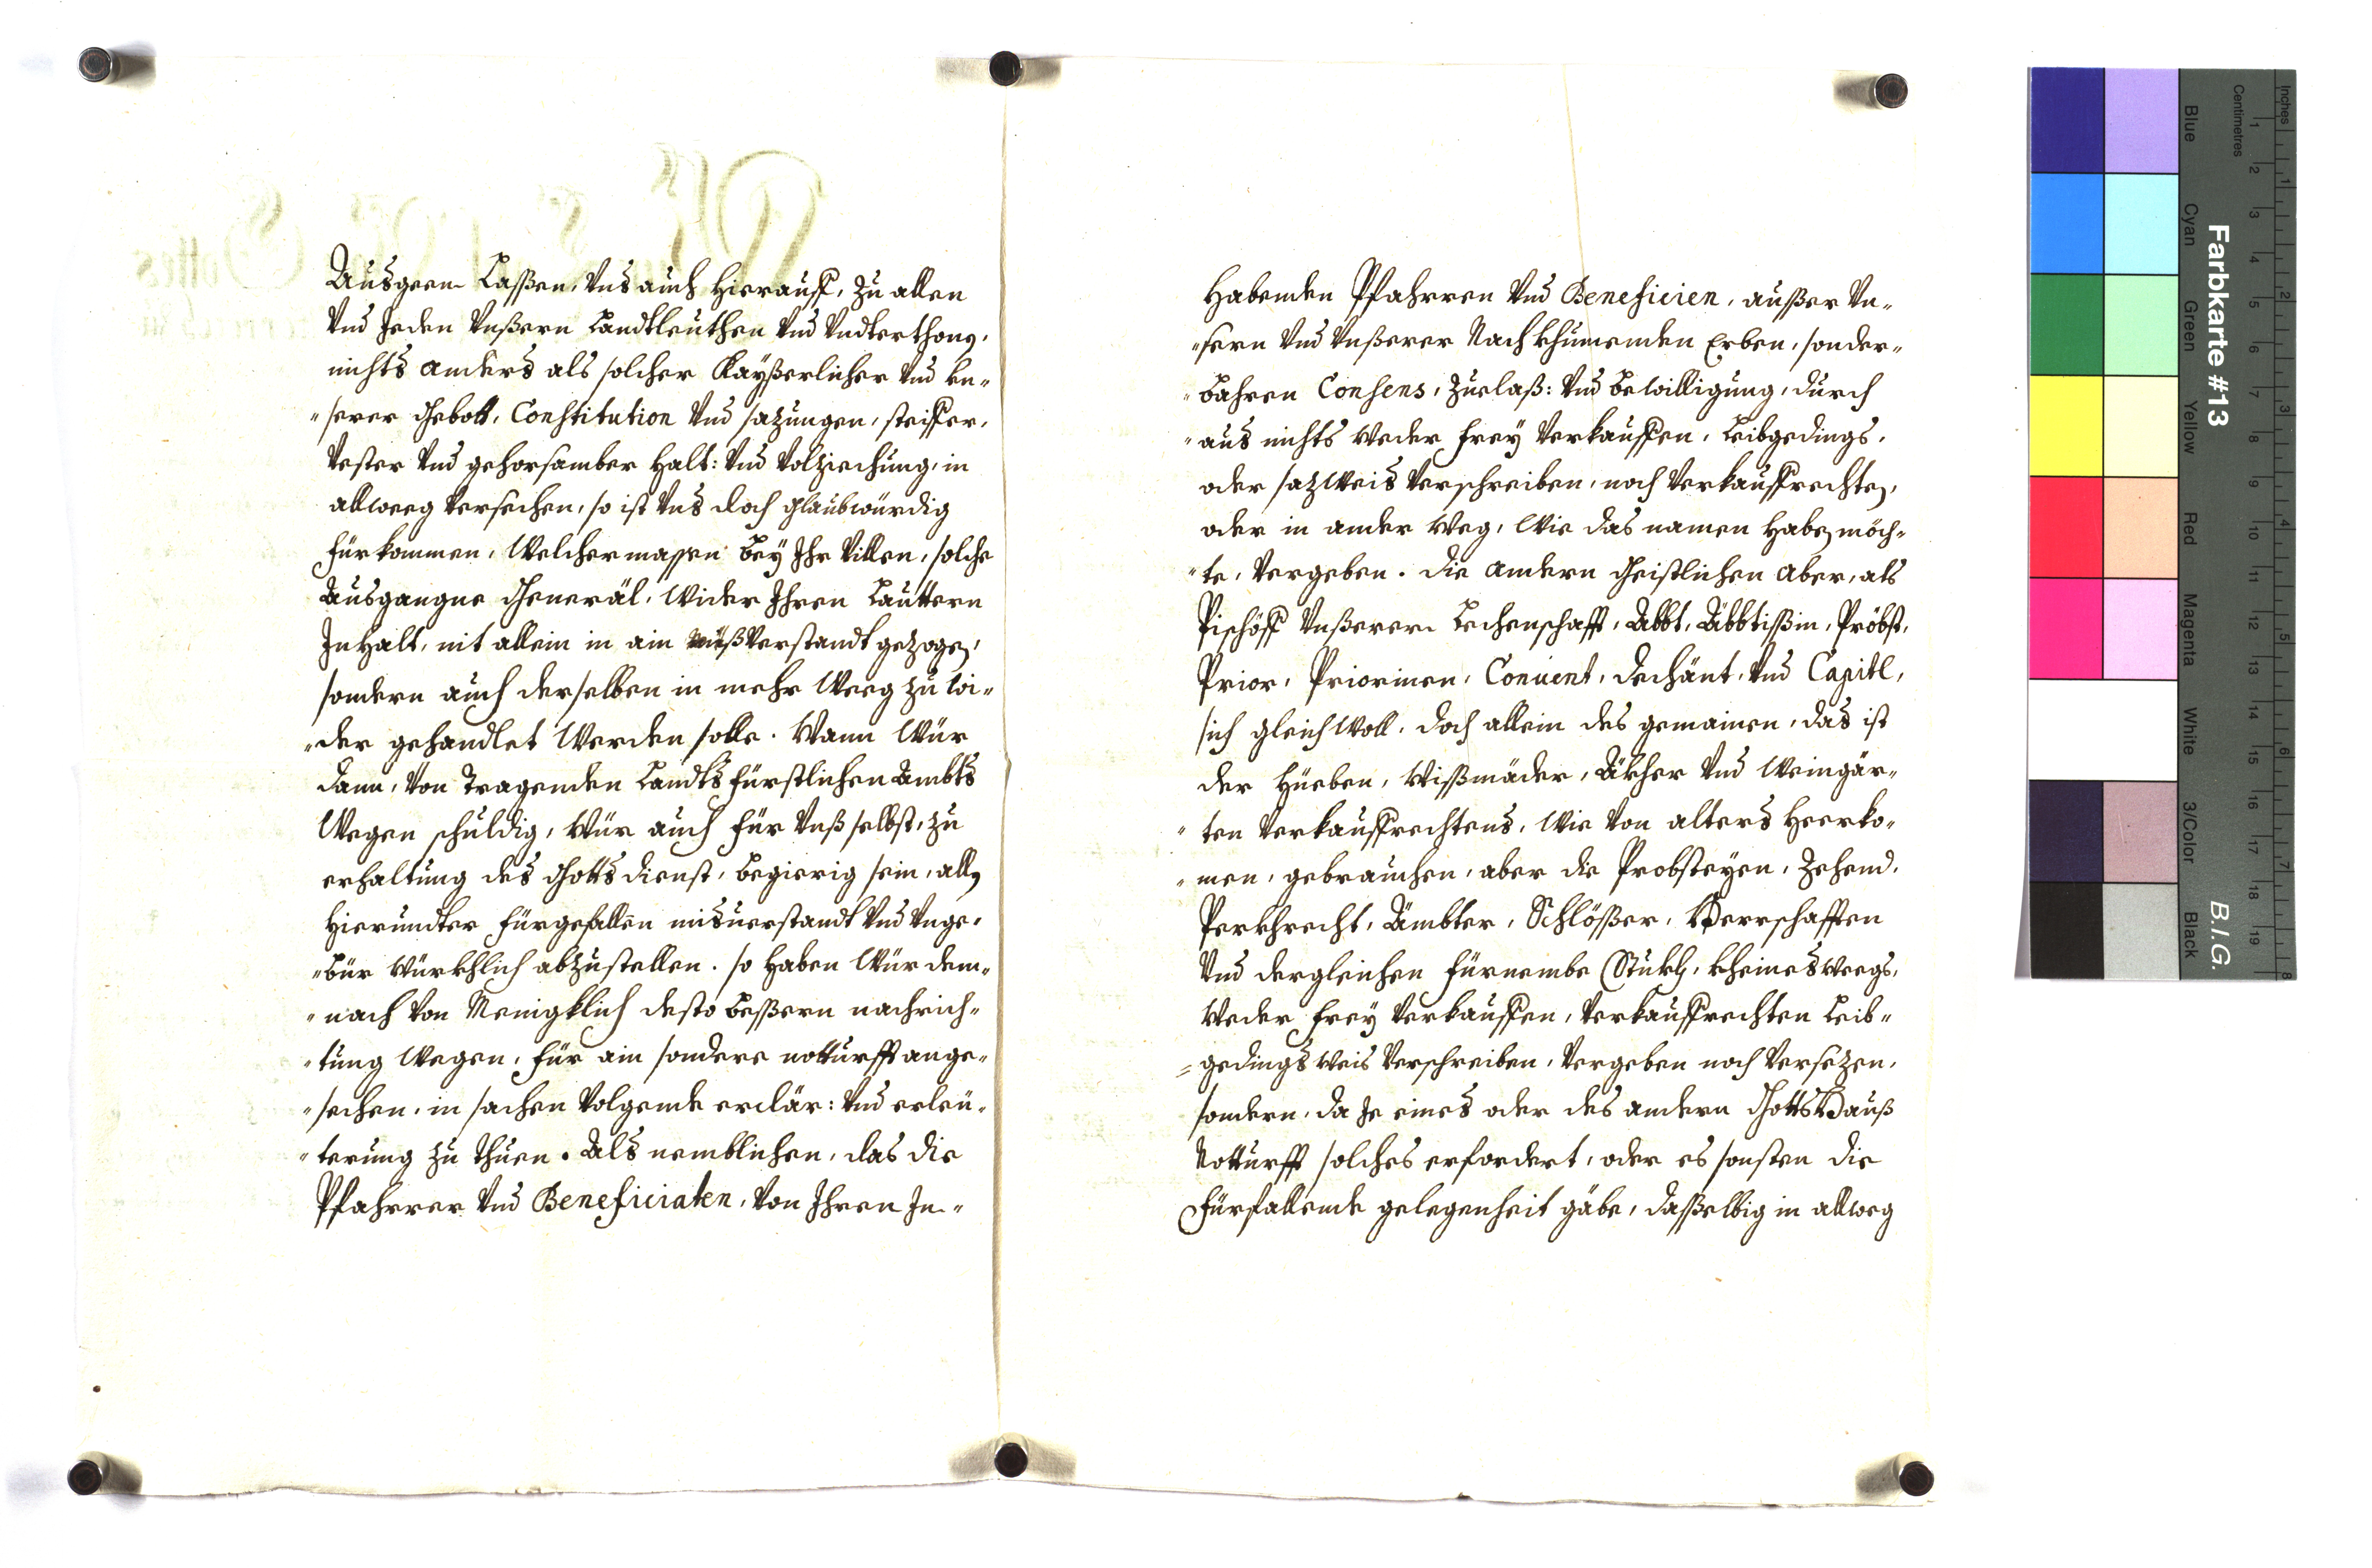 Ausgeen Laßen, Vns auch hierauff, zu allen
Vnd Jeden Vnßern Landtleüthen Vnd Vndterthonen,
nichts anders als solcher Kayßerlicher Vnd vn„
„serer Gebott, Constitution Vnd sazungen, steiffer,
Vester Vnd gehorsamber Halt: Vnd Volziechung, in
allweeg Versechen, so ist Vns doch glaubwürdig
fürkommen, Welchermassen bey Ihr Villen, solche
Ausgangne Generäl, Wider Ihren Lauttern
Inhalt, nit allein in ain mißVerstandt gezogen,
sondern auch derselben in mehr Weeg zu wi„
„der gehandlet Werden solle. Wann Wür
dann, Von Tragenden Landtsfürstlichen Ambts
Wegen schuldig, Wür auch für Vnß selbst, zu
erhaltung des Gottsdienst, begierig sein, allen
hierundter fürgefallen misuerstandt Vnd Vnge„
„bür Würkhlich abzustellen. so haben Wür dem„
„nach Von Menigklich desto beßern nachrich„
„tung Wegen, für ain sondere notturfft ange„
„sechen, in sachen Volgende erclär: Vnd erleü„
„terung zu thuen. Als nemblichen, das die
Pfahrrer Vnd Beneficiaten, Von Ihren In„
Habenden Pfahrren Vnd Beneficien, außer Vn„
„sern Vnd Vnßerer Nachkhumenden Erben, sonder„
„bahren Consens, Zuelaß: Vnd bewilligung, durch
„aus nichts Weder frey Verkauffen, Leibgedings,
oder sazWeis Verschreiben, noch Verkauffrechten,
oder in ander Weg, Wie das namen haben möch„
„te, Vergeben. die andern Geistlichen aber, als
Pischöff Vnßerer Lechenschafft, Abbt, Äbbtißin, Pröbst,
Prior, Priorinen, Conuent, dechänt, Vnd Capitl,
sich gleichWoll, doch allein des gemainen, das ist
der Hueben, Wißmäder, Äkher Vnd Weingär„
„ten Verkauffrechtens, Wie Von alters Heerko„
„men, gebrauchen, aber die Probsteyen, Zehend,
Perkhrecht, Ämbter, Schlößer, Herrschafften
Vnd dergleichen fürnembe Stukh, kheinesweegs,
Weder frey Verkauffen, Verkauffrechten Leib„
„gedingsWeis Verschreiben, Vergeben noch Versezen,
sondern, da Je eines oder des andern GottsHauß
Notturfft solches erfordert, oder es sonsten die
fürfallende gelegenheit gäbe, daßelbig in allweg
Farbkarte #13
B.I.G.
Inches
Centimetres
1 2 3 4 5 6 7 8 9 10 11 12 13 14 15 16 17 18 19
1 2 3 4 5 6 7 8
Blue Cyan Green Yellow Red Magenta White 3/Color Black